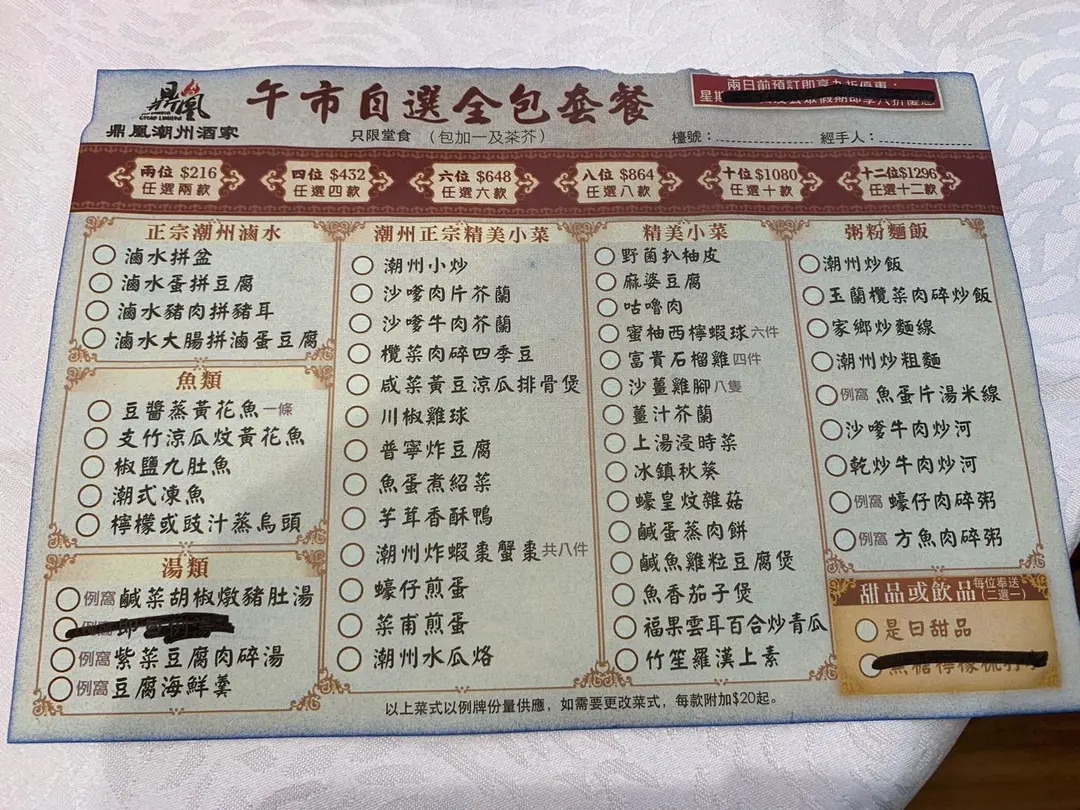 鼎凰
鼎凰潮州酒家
午市自選全包套餐
只限堂食 （包加一及茶芥）
兩日前預訂即享九折優惠：
檯號：
經手人：
兩位 $216
任選兩款
四位 $432
任選四款
六位 $648
任選六款
八位 $864
任選八款
十位 $1080
任選十款
十二位$1296
任選十二款
正宗潮州滷水
滷水拼盆
滷水蛋拼豆腐
滷水豬肉拼豬耳
滷水大腸拼滷蛋豆腐
魚類
豆醬蒸黃花魚一條
支竹涼瓜炆黃花魚
椒鹽九肚魚
潮式凍魚
檸檬或豉汁蒸烏頭
湯類
例窩 鹹菜胡椒燉豬肚湯
例窩 紫菜豆腐肉碎湯
例窩 豆腐海鮮羹
潮州正宗精美小菜
潮州小炒
沙嗲肉片芥蘭
沙嗲牛肉芥蘭
欖菜肉碎四季豆
咸菜黃豆涼瓜排骨煲
川椒雞球
普寧炸豆腐
魚蛋煮紹菜
芋茸香酥鴨
潮州炸蝦棗蟹棗共八件
蠔仔煎蛋
菜甫煎蛋
潮州水瓜烙
精美小菜
野菌扒柚皮
麻婆豆腐
咕嚕肉
蜜柚西檸蝦球六件
富貴石榴雞四件
沙薑雞腳八隻
薑汁芥蘭
上湯浸時菜
冰鎮秋葵
蠔皇炆雜菇
鹹蛋蒸肉餅
鹹魚雞粒豆腐煲
魚香茄子煲
福果雲耳百合炒青瓜
竹笙羅漢上素
粥粉麵飯
潮州炒飯
玉蘭欖菜肉碎炒飯
家鄉炒麵線
潮州炒粗麵
例窩 魚蛋片湯米線
沙嗲牛肉炒河
乾炒牛肉炒河
例窩 蠔仔肉碎粥
例窩 方魚肉碎粥
甜品或飲品 每位奉送（二選一）
是日甜品
以上菜式以例牌份量供應，如需要更改菜式，每款附加$20起。